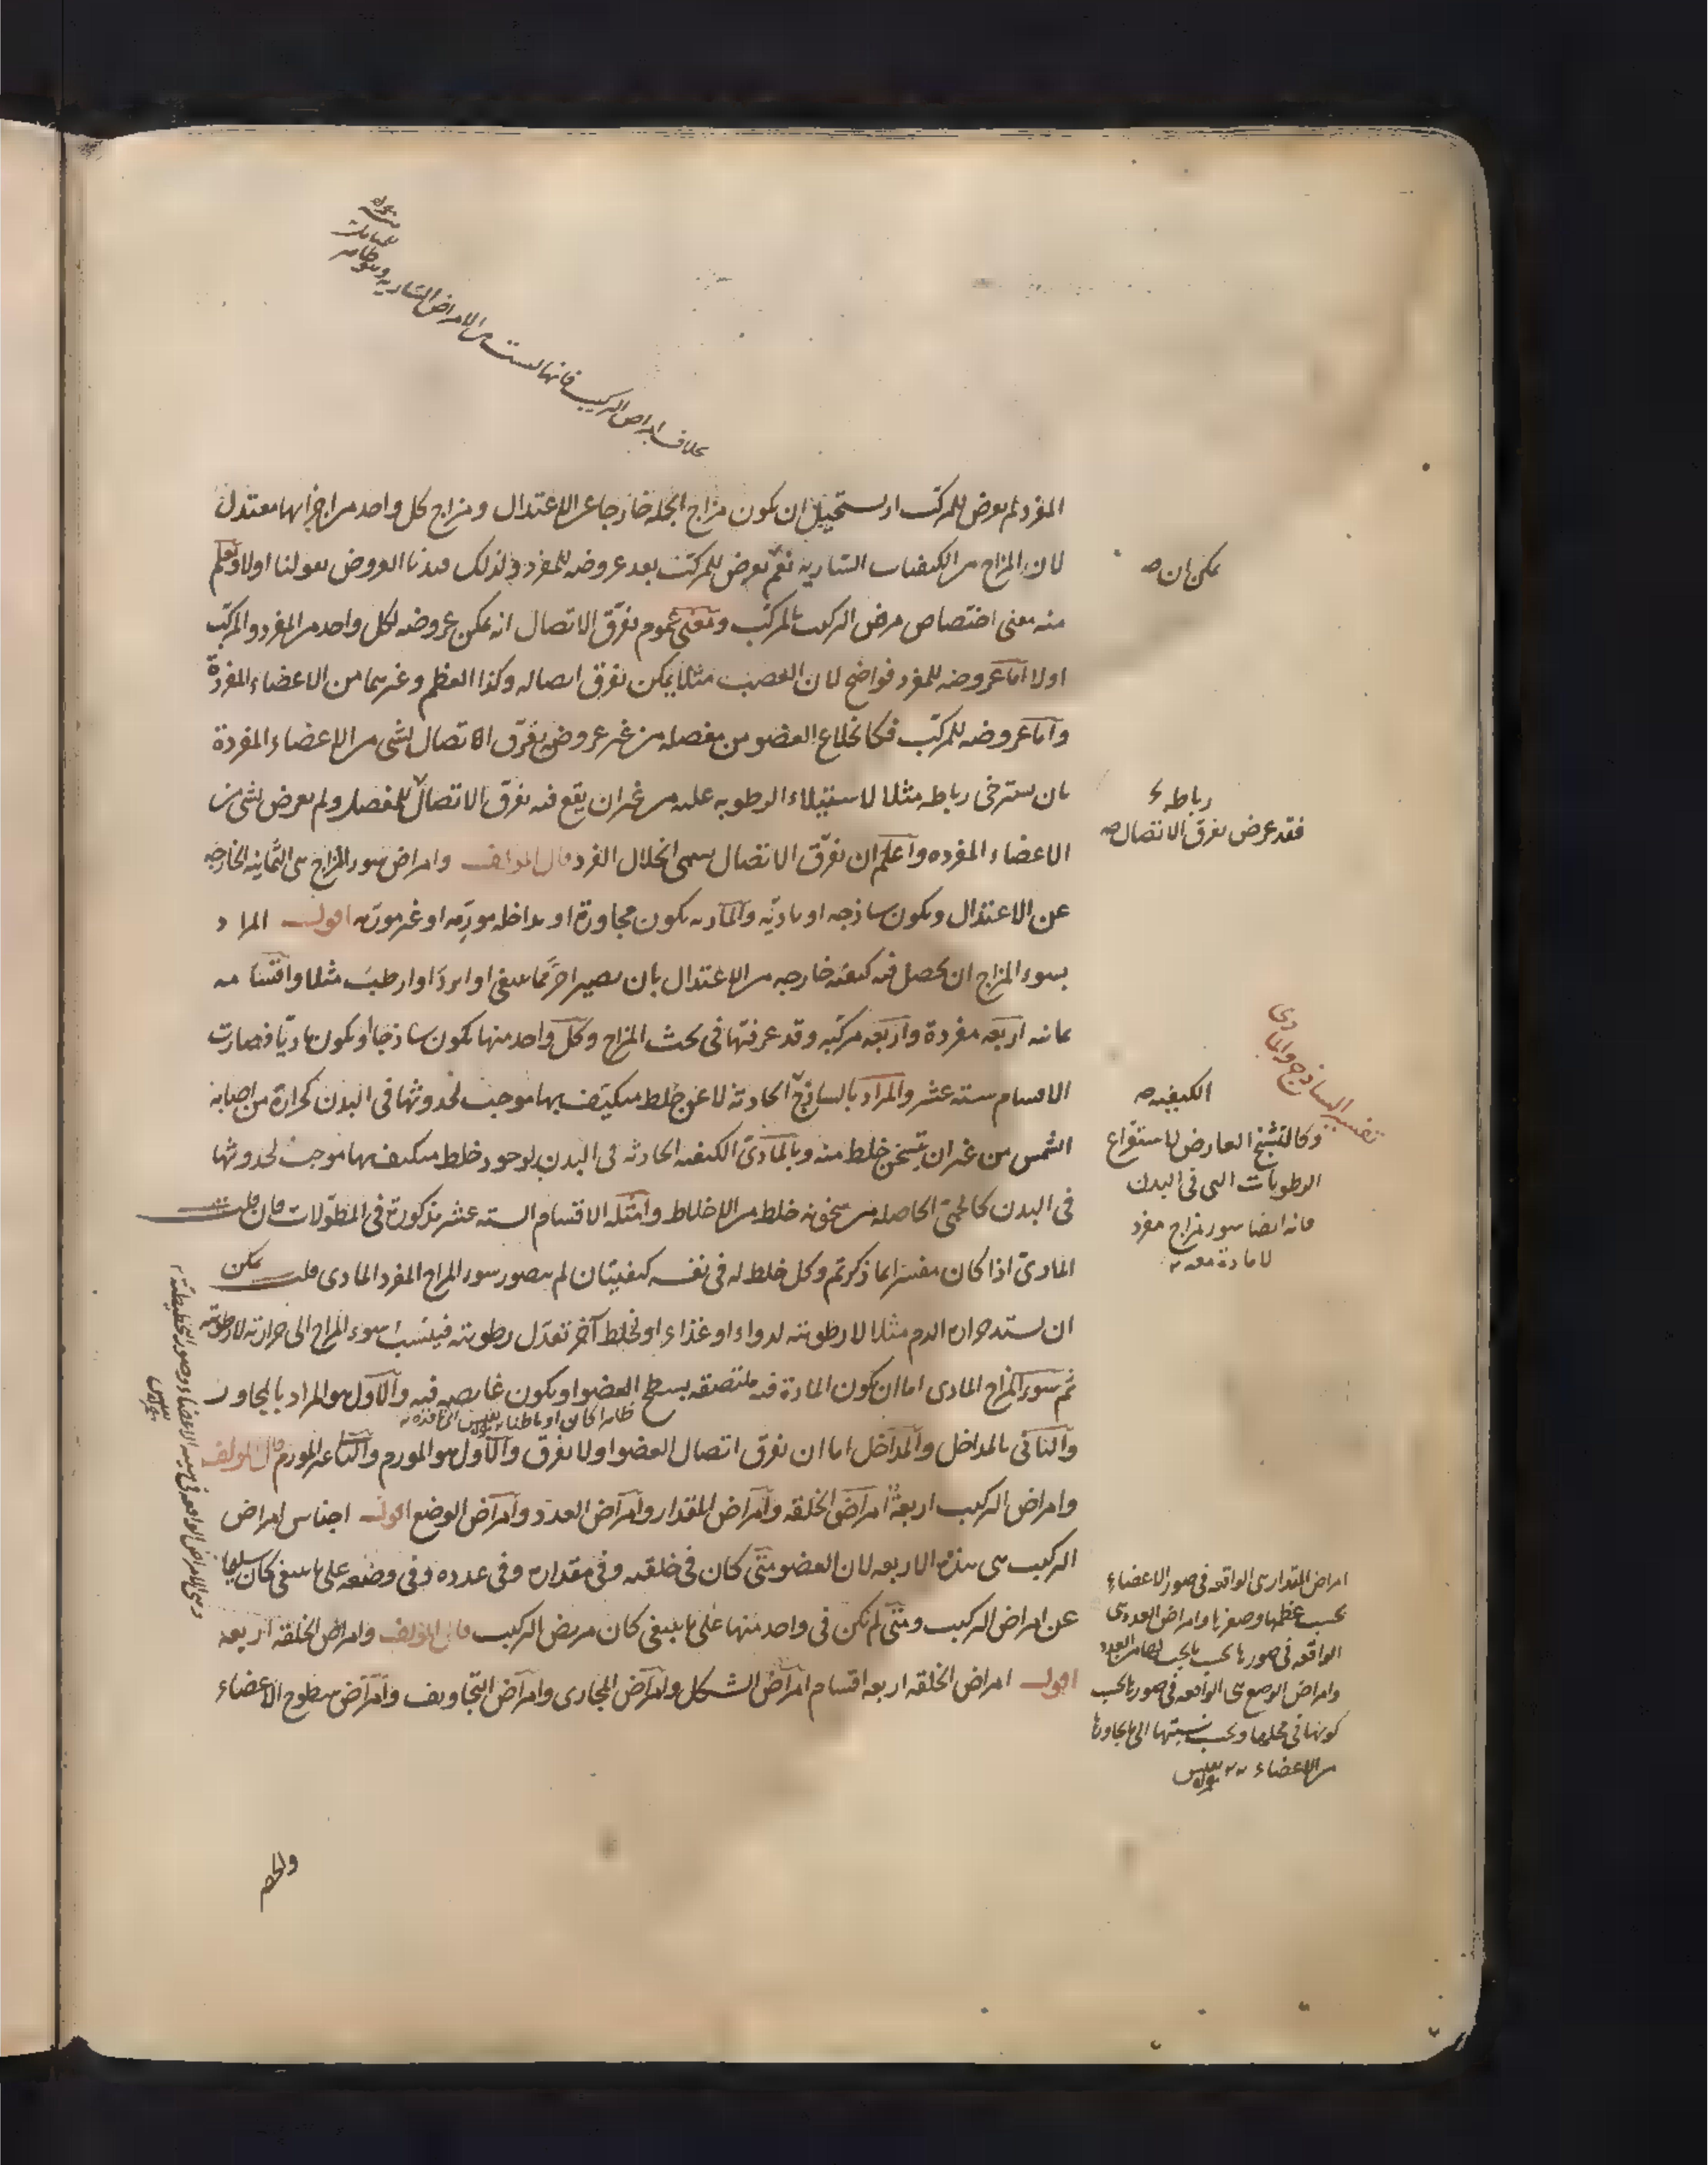 بخلاف امراض التركيب فانها ليست من الامراض السارية وهو ظاهر
المفرد ثم يعرض للمركب اذ يستحيل ان يكون مزاج الجملة خارجا عن الاعتدال ومزاج كل واحد من اجزائها معتدل
لان المزاج من الكيفيات السارية نعم يعرض للمركب بعد عروضه للمفرد فلذلك قيدنا العروض بقولنا اولا ويعلم
يمكن ان صح
منه معنى اختصاص مرض التركيب بالمركب ومعنى عموم تفرق الاتصال انه يمكن عروضه لكل واحد من المفرد والمركب
اولا اما عروضه للمفرد فواضح لان العصب مثلا يمكن تفرق اتصاله وكذا العظم وغيرهما من الاعضاء المفردة
واما عروضه للمركب فكانخلاع العضو من مفصله من غير عروض تفرق الاتصال لشئ من الاعضاء المفردة
بان يسترخى رباطه مثلا لاستيلاء الرطوبة عليه من غير ان يقع فيه تفرق الاتصال للمفصل ولم يعرض لشئ من
رباطه
فقد عرض تفرق الاتصال صح
الاعضاء المفردة واعلم ان تفرق الاتصال يسمى انحلال الفرد قال المؤلف وامراض سوء المزاج هى الثمانية الخارجة
عن الاعتدال ويكون ساذجة او مادية والمادية يكون مجاورة او مداخلة مورمة او غير مورمة اقول المراد
بسوء المزاج ان يحصل فيه كيفية خارجة من الاعتدال بان يصير احر مما ينبغى او ابرد او ارطب مثلا واقسامه
ثمانية اربعة مفردة واربعة مركبة وقد عرفتها فى بحث المزاج وكل واحد منها يكون ساذجا او يكون ماديا فصارت
الاقسام ستة عشر والمراد بالساذج الحادثة لا عن خلط متكيف بها موجب لحدوثها فى البدن كحرارة من اصابه
الكيفية صح
تفسير الساذج والمادى
الشمس من غير ان يتسخن خلط منه وبالمادى الكيفية الحادثة فى البدن لوجود خلط متكيف بها موجب لحدوثها
وكالتشنج العارض لاستفراغ
الرطوبات التى فى البدن
فانه ايضا سوء مزاج مفرد
لا مادة معه
فى البدن كالحمى الحاصلة من سخونة خلط من الاخلاط وامثلة الاقسام الستة عشر مذكورة فى المطولات فان قلت
المادى اذا كان مفسرا بما ذكرتم وكل خلط له فى نفسه كيفيتان لم يتصور سوء المزاج المفرد المادى قلت يمكن
ان يشتد حرارة الدم مثلا لا رطوبته لدواء او غذاء او لخلط آخر تعدل رطوبته فينسب سوء المزاج الى حرارته لا رطوبته
ثم سوء المزاج المادى اما ان يكون المادة فيه ملتصقة بسطح العضو او يكون غايصة فيه والاول هو المراد بالمجاور
ظاهرا كان او باطنا
والثانى بالمداخل والمداخل اما ان تفرق اتصال العضو او لا تفرق والاول هو المورم والثانى غير المورم قال المؤلف
وامراض التركيب اربعة امراض الخلقة وامراض المقدار وامراض العدد وامراض الوضع اقول اجناس امراض
التركيب هى هذه الاربعة لان العضو متى كان فى خلقته وفى مقداره وفى عدده وفى وضعه على ما ينبغى كان سليما
عن امراض التركيب ومتى لم يكن فى واحد منها على ما ينبغى كان مريض التركيب قال المؤلف وامراض الخلقة اربعة
اقول امراض الخلقة اربعة اقسام امراض الشكل وامراض المجارى وامراض التجاويف وامراض سطوح الاعضاء
امراض المقدار هى الواقعة فى صور الاعضاء
بحسب عظمها وصغرها وامراض العدد هى
الواقعة فى صورها بحسب ما يجب لها من العدد
وامراض الوضع هى الواقعة فى صورها بحسب
كونها فى محلها وبحسب نسبتها الى ما يجاورها
من الاعضاء